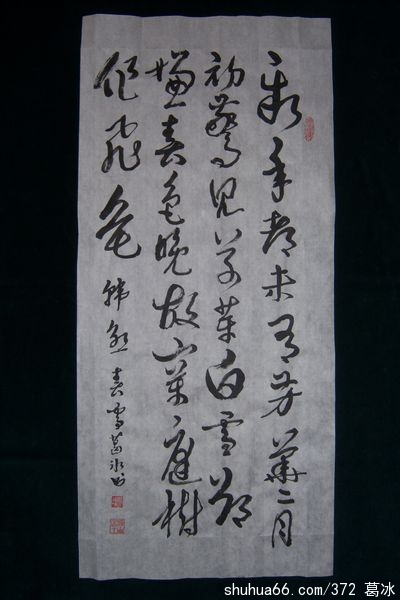 新年都未有芳華二月
初驚見草芽白雪卻
嫌春色晚故穿庭樹
作飛花 韓愈 春雪 葛冰书
shuhua66.com/372 葛冰